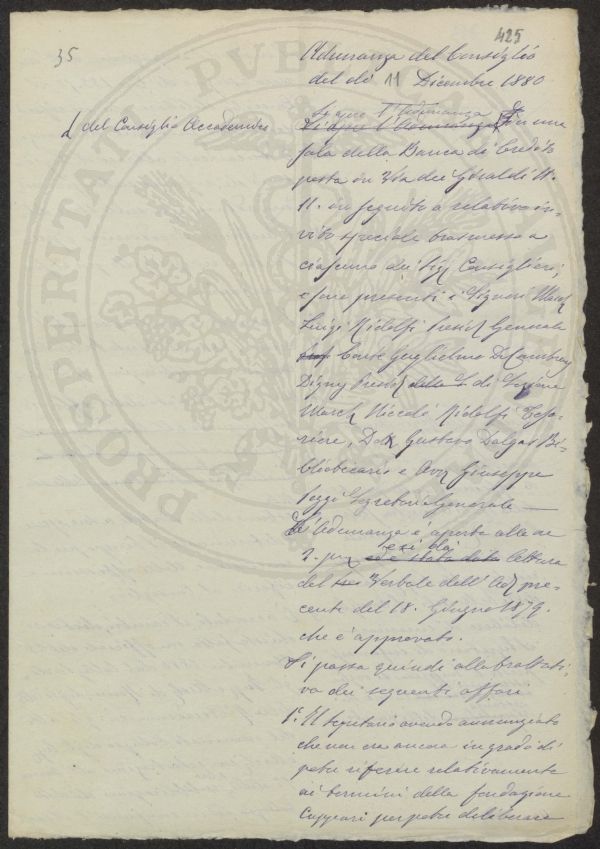 425
35
Adunanza del Consiglio
del dì 11 Dicembre 1880
si apre l'Adunanza
del Consiglio Accademico
Si apre l'Adunanza in una
sala della Banca di Credito
posta in Via dei Giraldi N.
11. in seguito a relativo in-
vito speciale trasmesso a
ciascuno dei Sigg Consiglieri,
e sono presenti i Signori March
Luigi Ridolfi Presid Generale
Conte Guglielmo De Cambray
Digny Presid delle S di Sezione
March Niccolò Ridolfi Teso-
riere, Dott Gustavo Dalgas Bi-
bliotecario e Avv Giuseppe
Pozzi Segretari Generale
L'Adunanza è aperta alle ore
e si dà
2. pm ed è stata data lettura
del Verbale dell' Ad prece-
cente del 18. Giugno 1879.
che è approvato.
Si passa quindi alla trattati-
va dei seguenti affari
1º. Il Segretario avendo annunziato
che non era ancora in grado di
poter riferire relativamente
ai termini della fondazione
Cuppari per poter deliberare
PROSPERITATI PVBLICAE